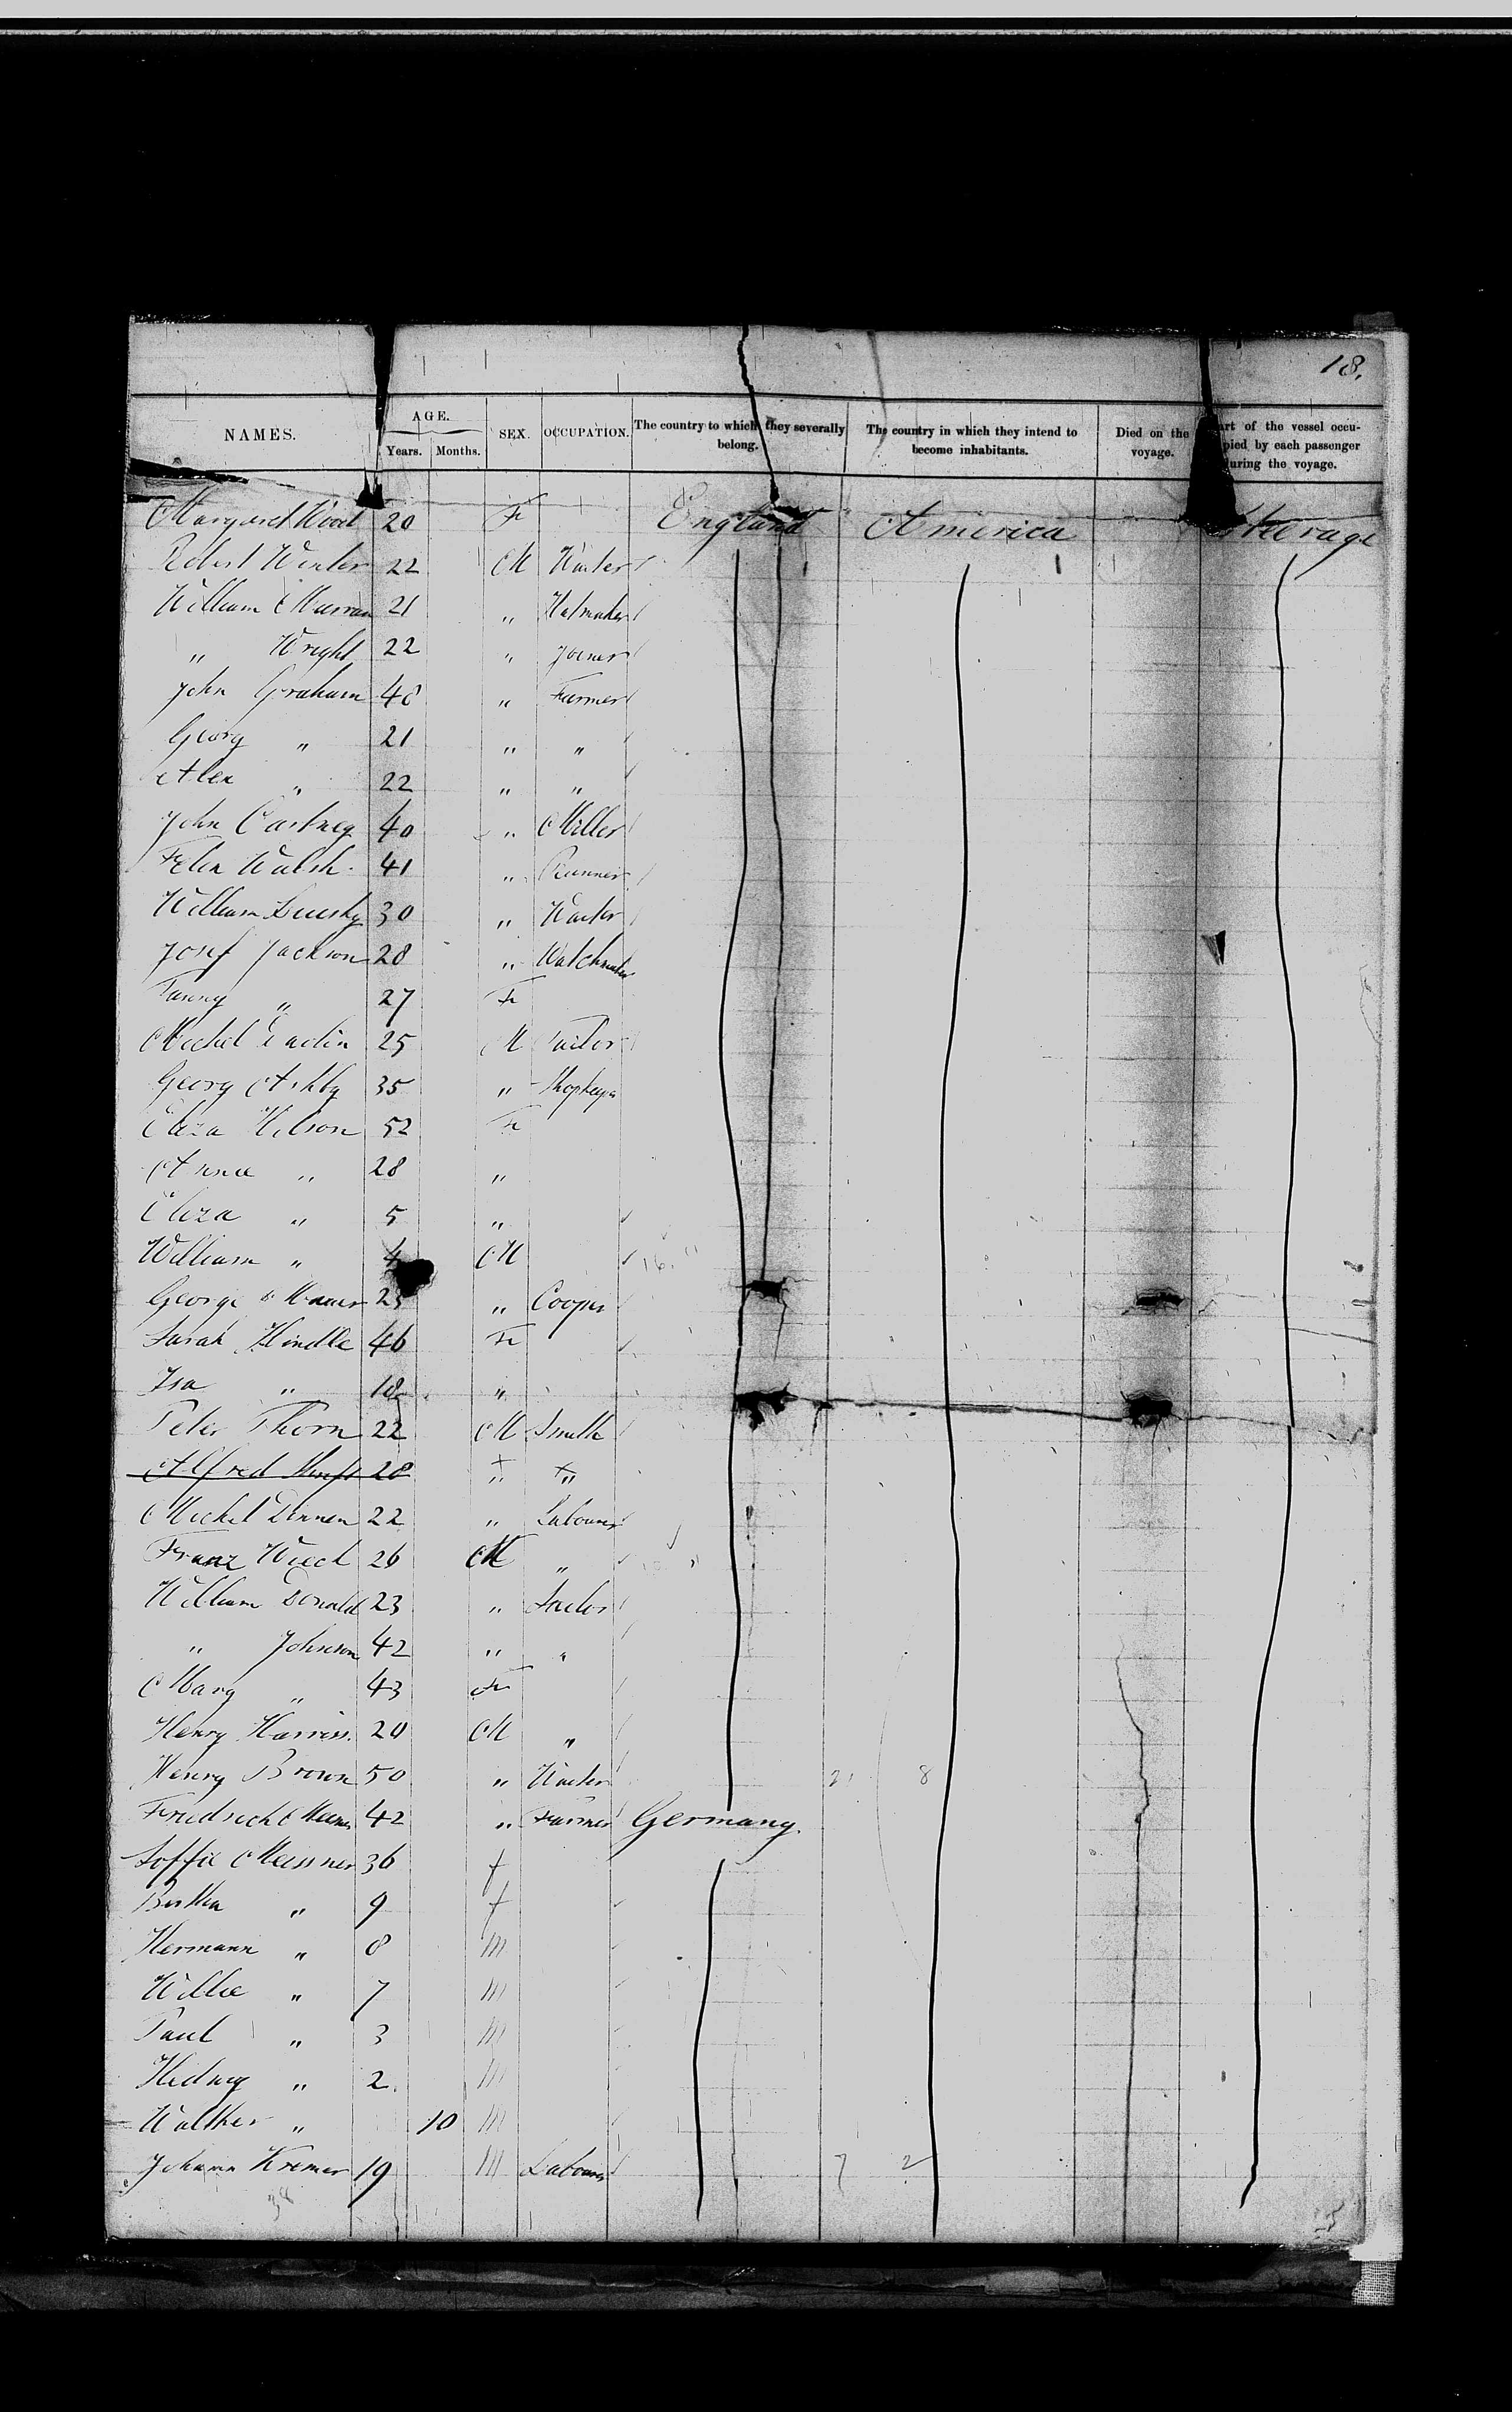 18.
NAMES. AGE. Years. Months. SEX. OCCUPATION. The country to which they severally belong. The country in which they intend to become inhabitants. Died on the voyage. Part of the vessel occupied by each passenger during the voyage.
Margaret Wood 20 Fe England America Steerage
Robert Winter 22 M Waiter
William Marran 21 " Hatmaker
" Wright 22 " Joiner
John Graham 48 " Farmer
Georg " 21 " "
Alex " 22 " "
John Cartney 40 " Miller
Felix Walsh 41 "
William 30 " Waiter
Josef Jackson 28 " Watchmaker
Fanny " 27 Fe
Michel 25 M Tailor
Georg Ashby 35 " Shopkeeper
Eliza Wilson 52 Fe
Annie " 28 "
Eliza " 5 "
William " 4 M 16
George 25 " Cooper
Sarah Hindle 46 Fe
Isa " 18 "
Peter Thorn 22 M Smith
Alfred 28 " "
Michel Dinnen 22 " Labourer
Franz Wiech 26 M "
William Donald 23 "
" Johnson 42 " "
Mary " 43 Fe
Henry Harriss 20 M "
Henry Brown 50 " Waiter 21 8
Friedrich 42 " Farmer Germany.
Soffie Meissner 36 f
Bertha " 9 f
Hermann " 8 m
Willie " 7 m
Paul " 3 m
Hedwig " 2 m
Walther " 10 m
Johann Kremer 19 m Labourer 7 2
38